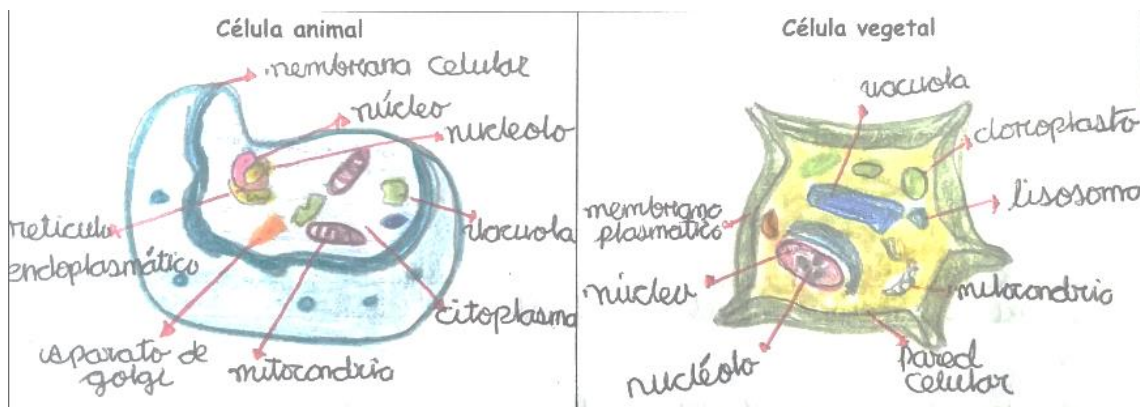 Célula animal
membrana celular
núcleo
nucleolo
retículo
endoplasmático
vacuola
citoplasma
aparato de
golgi
mitocondria
Célula vegetal
vacuola
cloroplasto
lisosoma
membrana
plasmático
núcleo
mitocondria
nucléolo
pared
celular